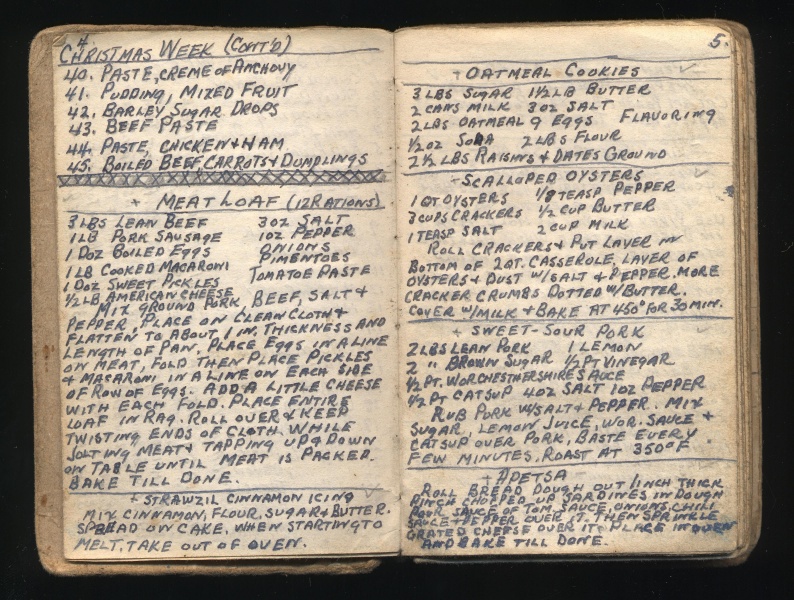 4.
CHRISTMAS WEEK (CONT'D)
40. PASTE, CREME OF ANCHOVY
41. PUDDING, MIXED FRUIT
42. BARLEY SUGAR DROPS
43. BEEF PASTE
44. PASTE, CHICKEN + HAM
45. BOILED BEEF CARROTS + DUMPLINGS
+ MEAT LOAF (12 RATIONS)
3 LBS LEAN BEEF 3 OZ SALT
1 LB PORK SAUSAGE 1 OZ PEPPER
1 DOZ BOILED EGGS ONIONS
1 LB COOKED MACARONI PIMENTOES
1 DOZ SWEET PICKLES TOMATOE PASTE
1/2 LB AMERICAN CHEESE
MIX GROUND PORK, BEEF, SALT +
PEPPER, PLACE ON CLEAN CLOTH +
FLATTEN TO ABOUT 1 IN. THICKNESS AND
LENGTH OF PAN. PLACE EGGS IN A LINE
ON MEAT, FOLD THEN PLACE PICKLES
+ MACARONI IN A LINE ON EACH SIDE
OF ROW OF EGGS. ADD A LITTLE CHEESE
WITH EACH FOLD. PLACE ENTIRE
LOAF IN RAG. ROLL OVER + KEEP
TWISTING ENDS OF CLOTH WHILE
JOLTING MEAT + TAPPING UP + DOWN
ON TABLE UNTIL MEAT IS PACKED.
BAKE TILL DONE.
+ STRAWZIL CINNAMON ICING
MIX CINNAMON, FLOUR, SUGAR + BUTTER.
SPREAD ON CAKE, WHEN STARTING TO
MELT, TAKE OUT OF OVEN.
5.
+ OATMEAL COOKIES
3 LBS SUGAR 1 1/2 LB BUTTER
2 CANS MILK 3 OZ SALT
2 LBS OATMEAL 9 EGGS FLAVORING
1/2 OZ SODA 2 LBS FLOUR
2 1/2 LBS RAISINS + DATES GROUND
+ SCALLOPED OYSTERS
1 QT OYSTERS 1/8 TEASP PEPPER
3 CUPS CRACKERS 1/2 CUP BUTTER
1 TEASP SALT 2 CUP MILK
ROLL CRACKERS + PUT LAYER IN
BOTTOM OF 2 QT. CASSEROLE, LAYER OF
OYSTERS + DUST W/SALT + PEPPER. MORE
CRACKER CRUMBS DOTTED W/BUTTER.
COVER W/MILK + BAKE AT 450° FOR 30 MIN.
+ SWEET-SOUR PORK
2 LBS LEAN PORK 1 LEMON
2 " BROWN SUGAR 1/2 PT VINEGAR
1/2 PT. WORCHESTHERSHIRE SAUCE
1/2 PT CATSUP 4 OZ SALT 1 OZ PEPPER
RUB PORK W/SALT + PEPPER. MIX
SUGAR, LEMON JUICE, WOR. SAUCE +
CATSUP OVER PORK, BASTE EVERY
FEW MINUTES. ROAST AT 350°F
+ APETSA
ROLL BREAD DOUGH OUT 1 INCH THICK
PINCH CHOPPED UP SARDINES IN DOUGH
POUR SAUCE OF TOM. SAUCE, ONIONS, CHILI
SAUCE + PEPPER OVER IT. THEN SPRINKLE
GRATED CHEESE OVER IT + PLACE IN OVEN
AND BAKE TILL DONE.